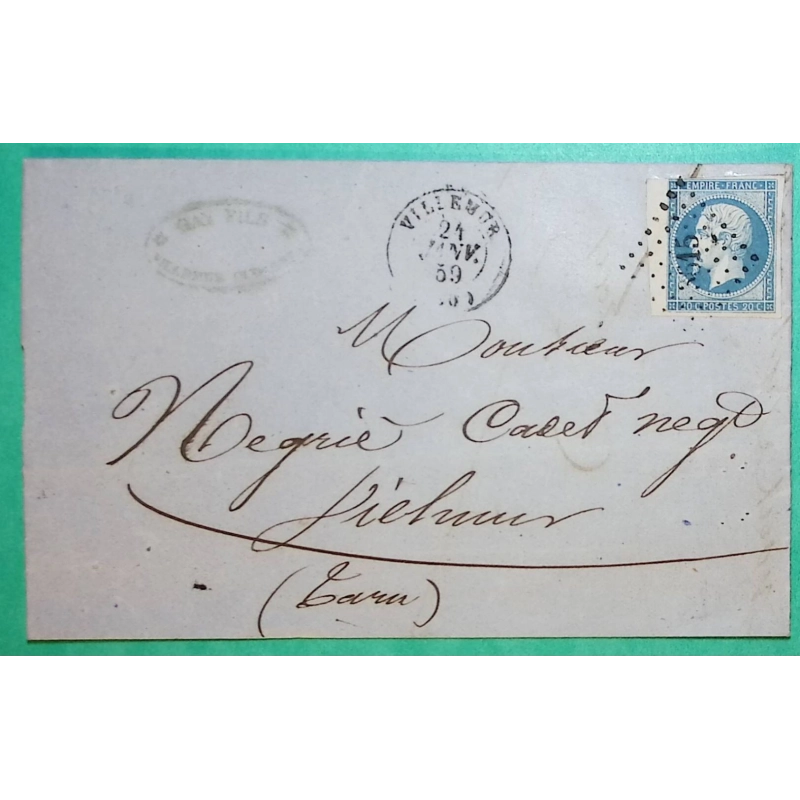 GAY FILS
VILLEMUR
21
JANV.
59
EMPIRE FRANC
20 C. POSTES 20 C.
Monsieur
Negrié Cadet negt
Vielmur
(Tarn)